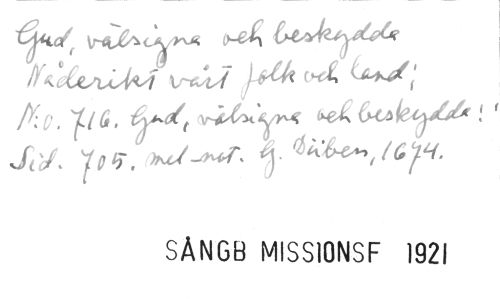 Gud, välsigna och beskydda
Nåderikt vårt folk och land;
N:o. 716. Gud, välsigna och beskydda!
Sid. 705. mel-not. G. Düben, 1674.
SÅNGB MISSIONSF 1921